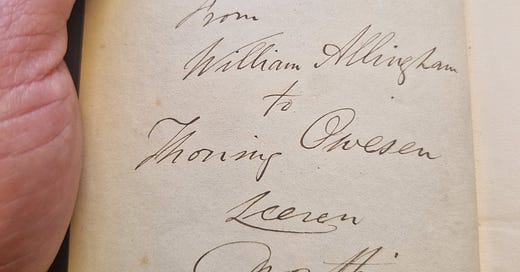 From
William Allingham
to
Thoning Owesen
Leeren